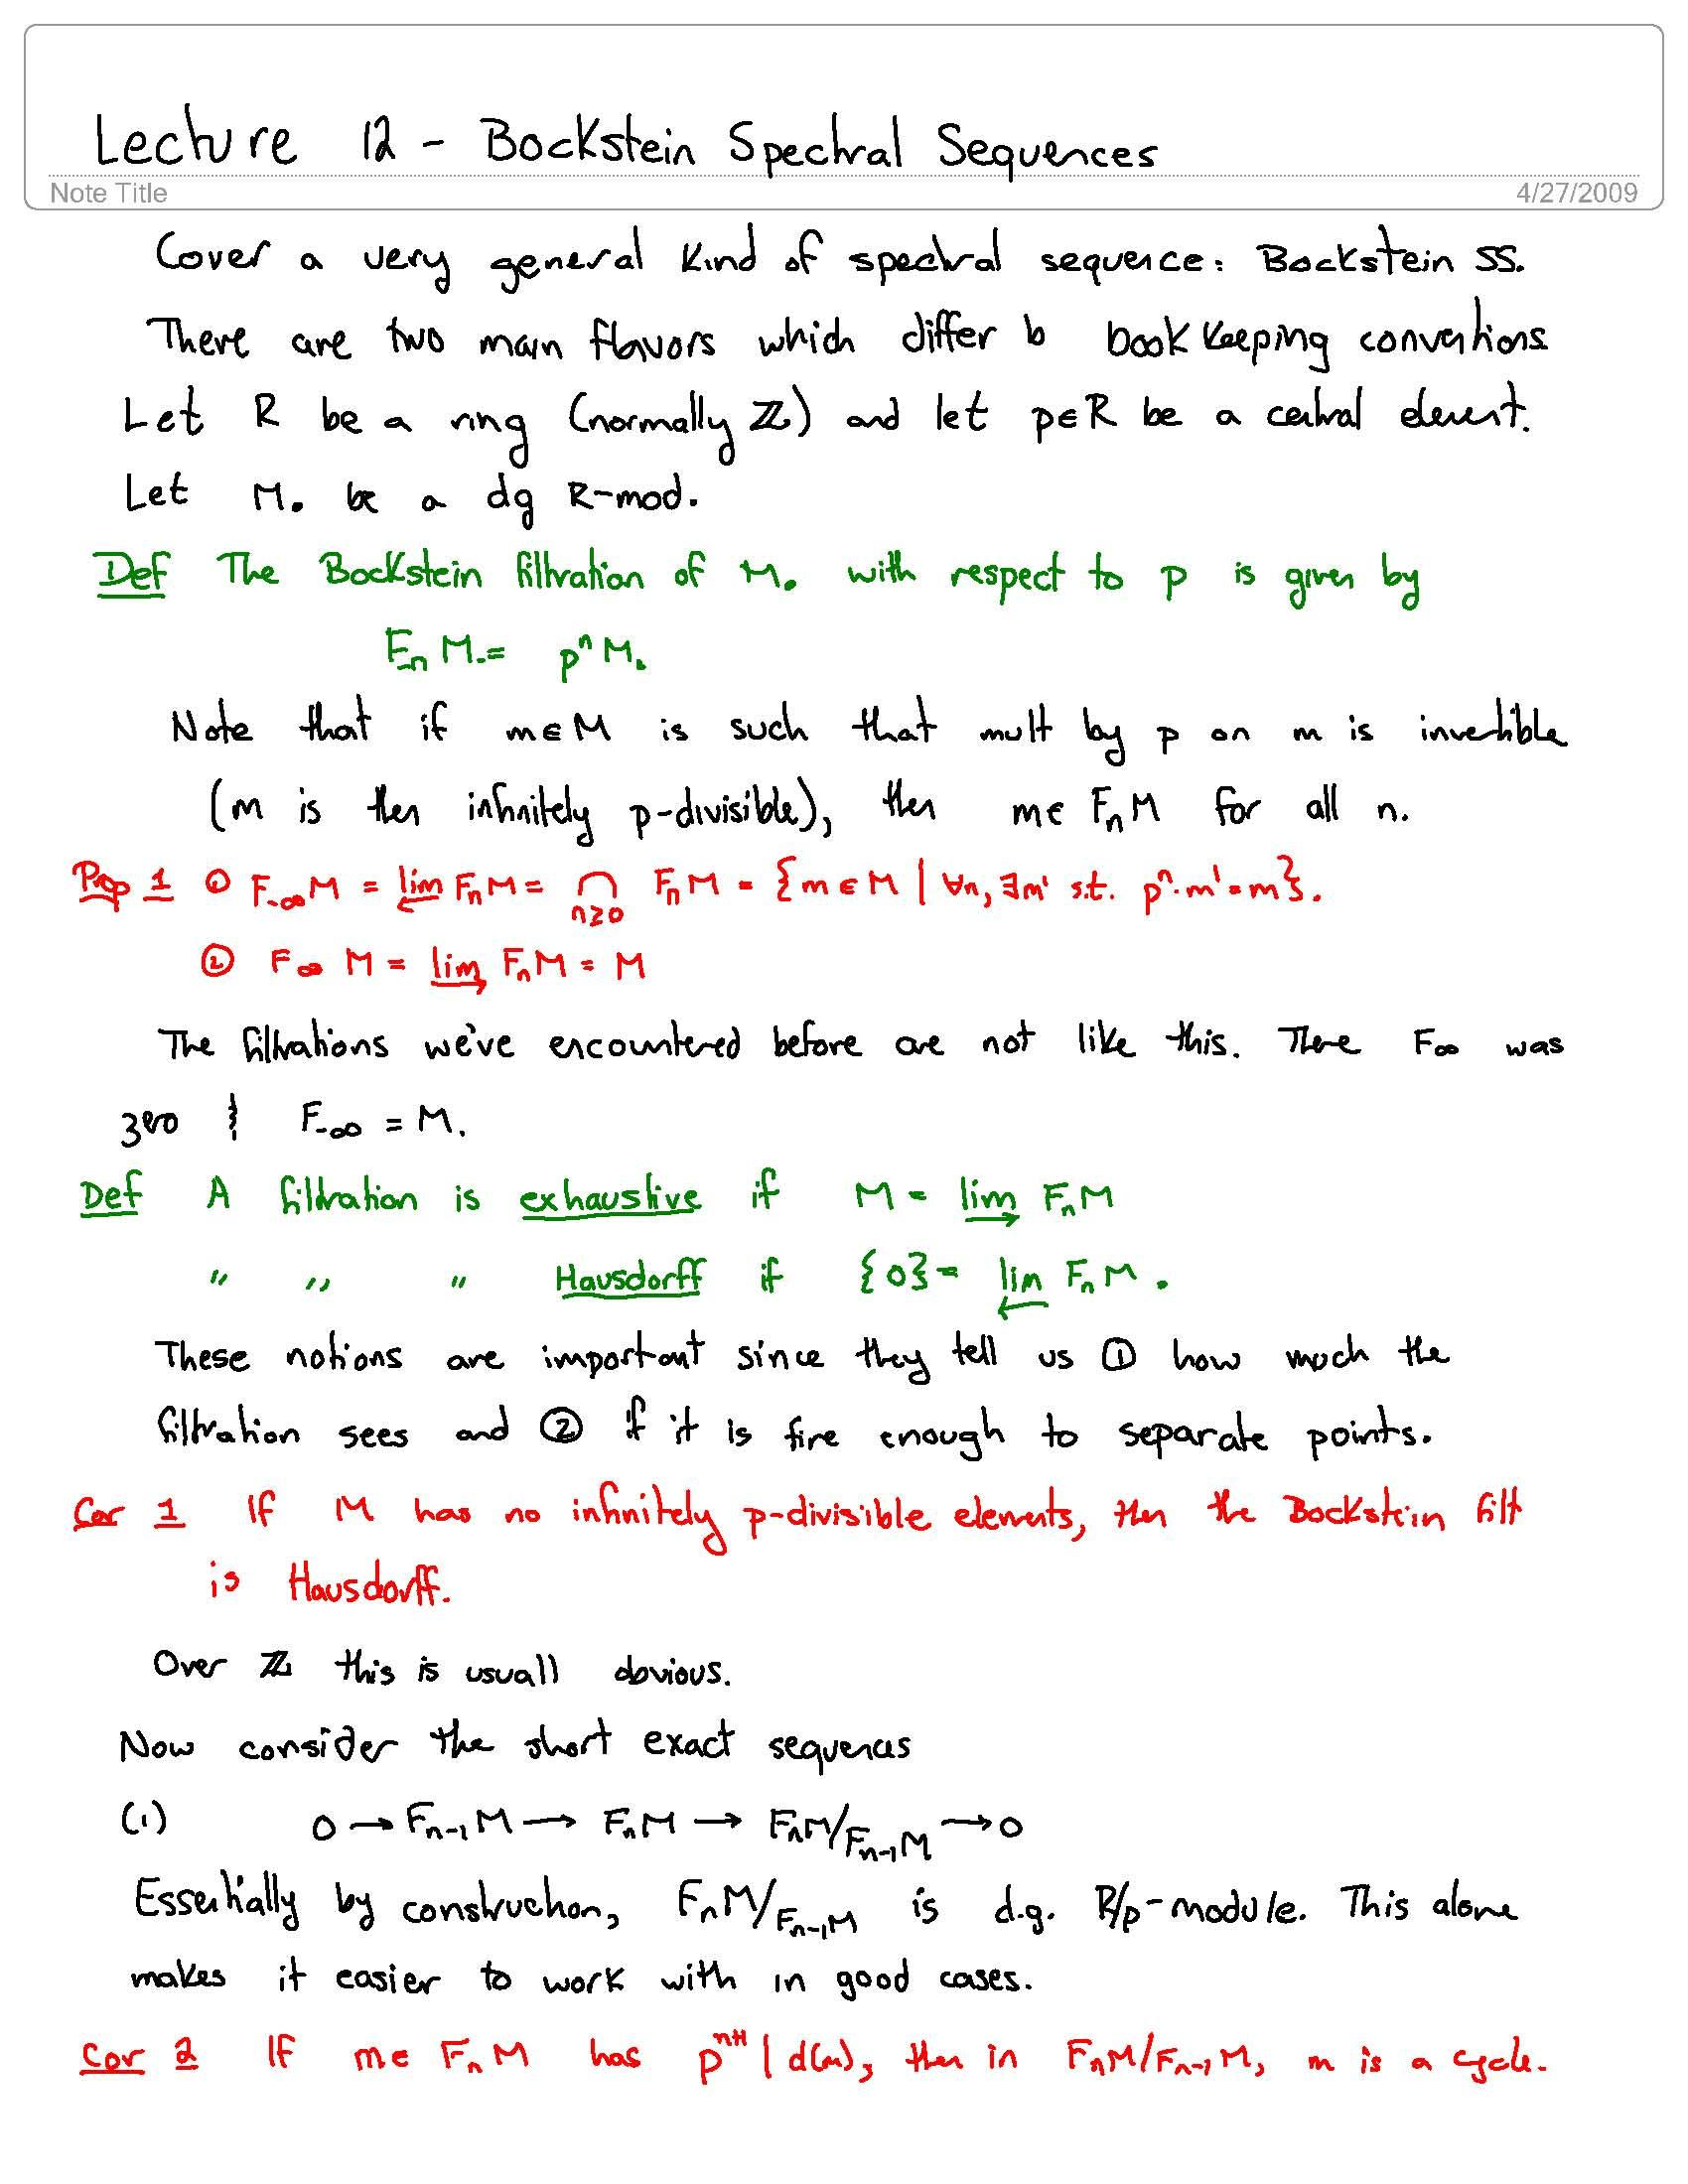 Lecture 12 - Bockstein Spectral Sequences
Note Title 4/27/2009
Cover a very general kind of spectral sequence: Bockstein SS.
There are two main flavors which differ b bookkeeping conventions
Let R be a ring (normally ℤ) and let p∈R be a central element.
Let M. be a dg R-mod.
Def The Bockstein filtration of M. with respect to p is given by
F₋ₙ M. = pⁿ M.
Note that if m∈M is such that mult by p on m is invertible
(m is then infinitely p-divisible), then m∈ FₙM for all n.
Prop 1 ① F₋∞M = lim← FₙM = ∩ₙ≥₀ FₙM = {m∈M | ∀n, ∃m' s.t. pⁿ·m'=m}.
② F∞ M = lim→ FₙM = M
The filtrations we've encountered before are not like this. There F∞ was
zero & F₋∞ = M.
Def A filtration is exhaustive if M = lim→ FₙM
" " " Hausdorff if {0} = lim← FₙM.
These notions are important since they tell us ① how much the
filtration sees and ② if it is fine enough to separate points.
Cor 1 If M has no infinitely p-divisible elements, then the Bockstein filt
is Hausdorff.
Over ℤ this is usuall obvious.
Now consider the short exact sequences
(1) 0 → Fₙ₋₁M → FₙM → FₙM/Fₙ₋₁M → 0
Essentially by construction, FₙM/Fₙ₋₁M is d.g. R/p-module. This alone
makes it easier to work with in good cases.
Cor 2 If m∈ FₙM has pⁿ⁺¹ | d(m), then in FₙM/Fₙ₋₁M, m is a cycle.